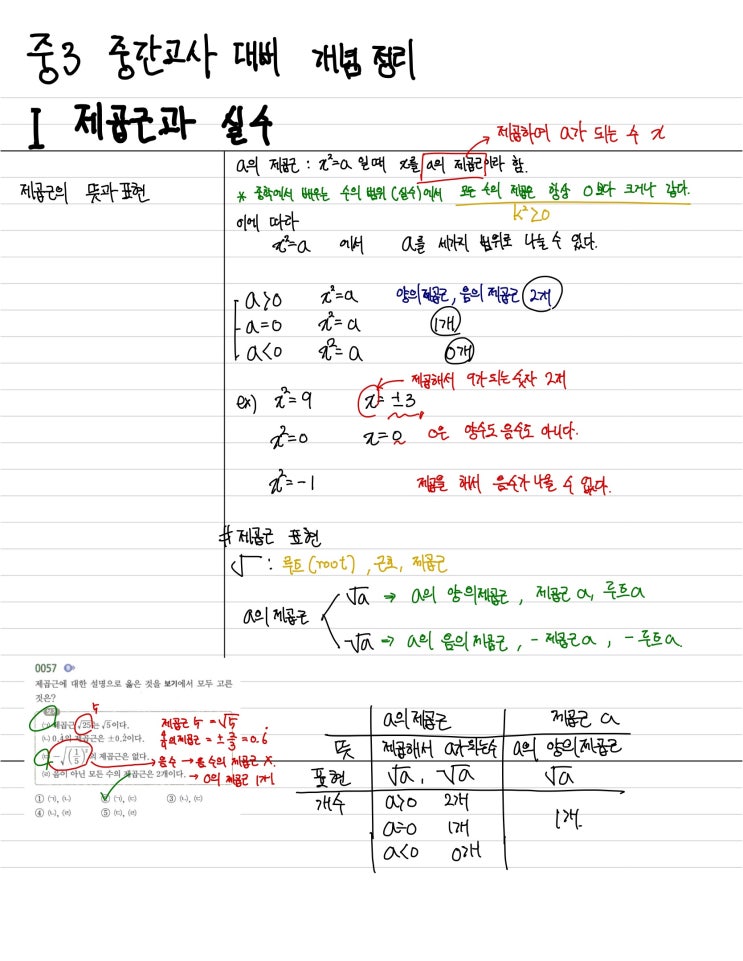 중3 중간고사 대비 개념 정리
I 제곱근과 실수
제곱하여 a가 되는 수 x
제곱근의 뜻과 표현
a의 제곱근 : x²=a 일 때 x를 a의 제곱근이라 함.
* 중학에서 배우는 수의 범위(실수)에서 모든 수의 제곱은 항상 0보다 크거나 같다.
k²≥0
이에 따라
x²=a 에서 a를 세가지 범위로 나눌 수 있다.
a>0 x²=a 양의 제곱근, 음의 제곱근 2개
a=0 x²=a 1개
a<0 x²=a 0개
제곱해서 9가 되는 숫자 2개
ex) x²=9 x=±3
x²=0 x=0 0은 양수도 음수도 아니다.
x²=-1 제곱을 해서 음수가 나올 수 없다.
# 제곱근 표현
√ : 루트(root), 근호, 제곱근
a의 제곱근
√a ⇒ a의 양의 제곱근, 제곱근 a, 루트 a
-√a ⇒ a의 음의 제곱근, -제곱근 a, -루트 a.
0057
제곱근에 대한 설명으로 옳은 것을 보기에서 모두 고른
것은?
5
(ㄱ) 제곱근 √25는 √5이다. 제곱근 5 = √5
(ㄴ) 0.4̇의 제곱근은 ±0.2̇이다. 의 제곱근 = ±2/3 = 0.6̇
의 제곱근은 없다. 음수 → 음수의 제곱근 X.
(ㄹ) 음이 아닌 모든 수의 제곱근은 2개이다. → 0의 제곱근 1개
① (ㄱ), (ㄴ) ② (ㄱ), (ㄷ) ③ (ㄴ), (ㄷ)
④ (ㄴ), (ㄹ) ⑤ (ㄷ), (ㄹ)
a의 제곱근 제곱근 a
뜻 제곱해서 a가 되는 수 a의 양의 제곱근
표현 √a, -√a √a
개수 a>0 2개 1개.
a=0 1개
a<0 0개